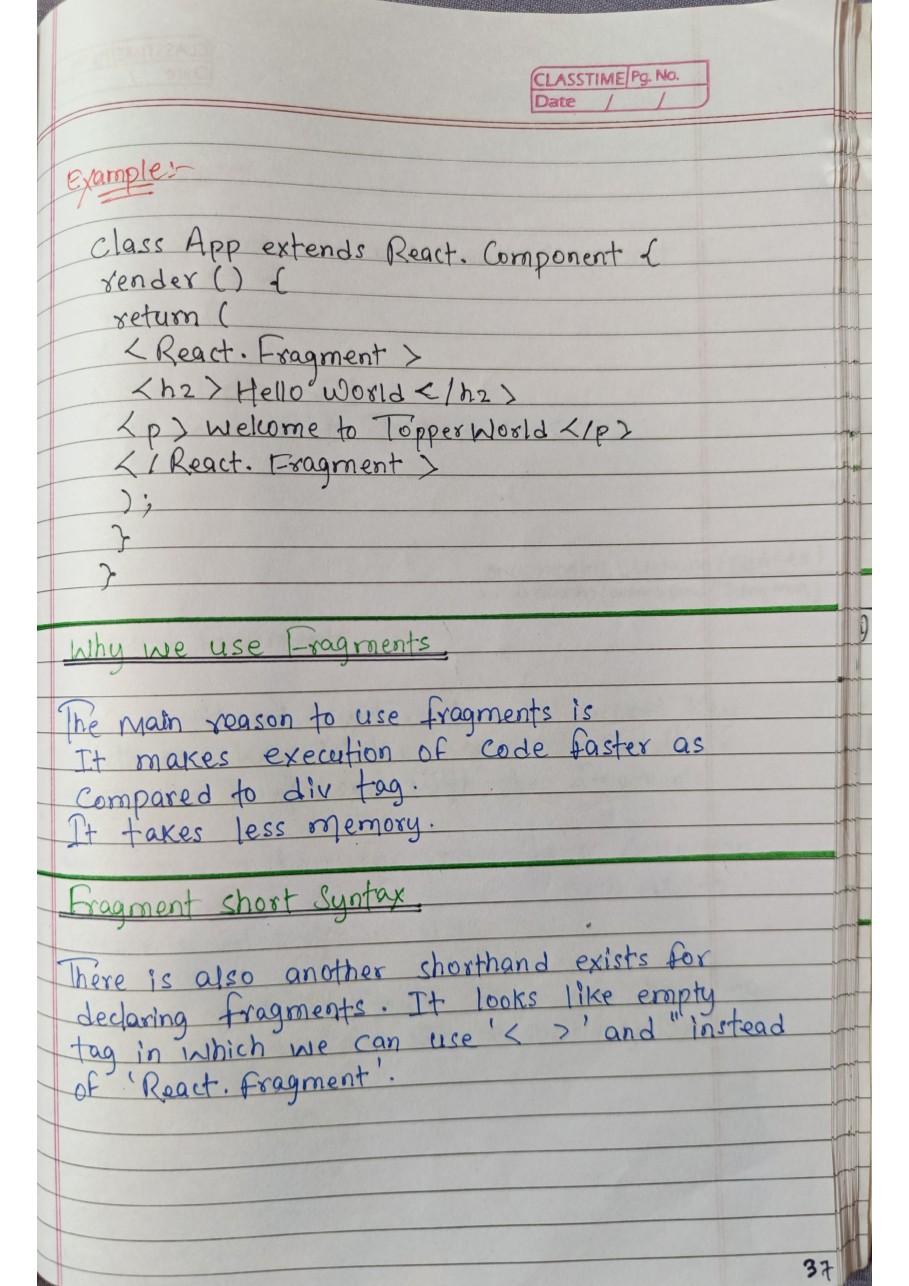 CLASSTIME Pg. No.
Date / /
Example:-
class App extends React. Component {
render () {
return (
< React. Fragment >
<h2> Hello World </h2>
<p> Welcome to TopperWorld </p>
</ React. Fragment >
);
}
}
Why we use Fragments
The main reason to use fragments is
It makes execution of code faster as
compared to div tag.
It takes less memory.
Fragment short Syntax
There is also another shorthand exists for
declaring fragments. It looks like empty
tag in which we can use '< >' and '' instead
of 'React. fragment'.
37